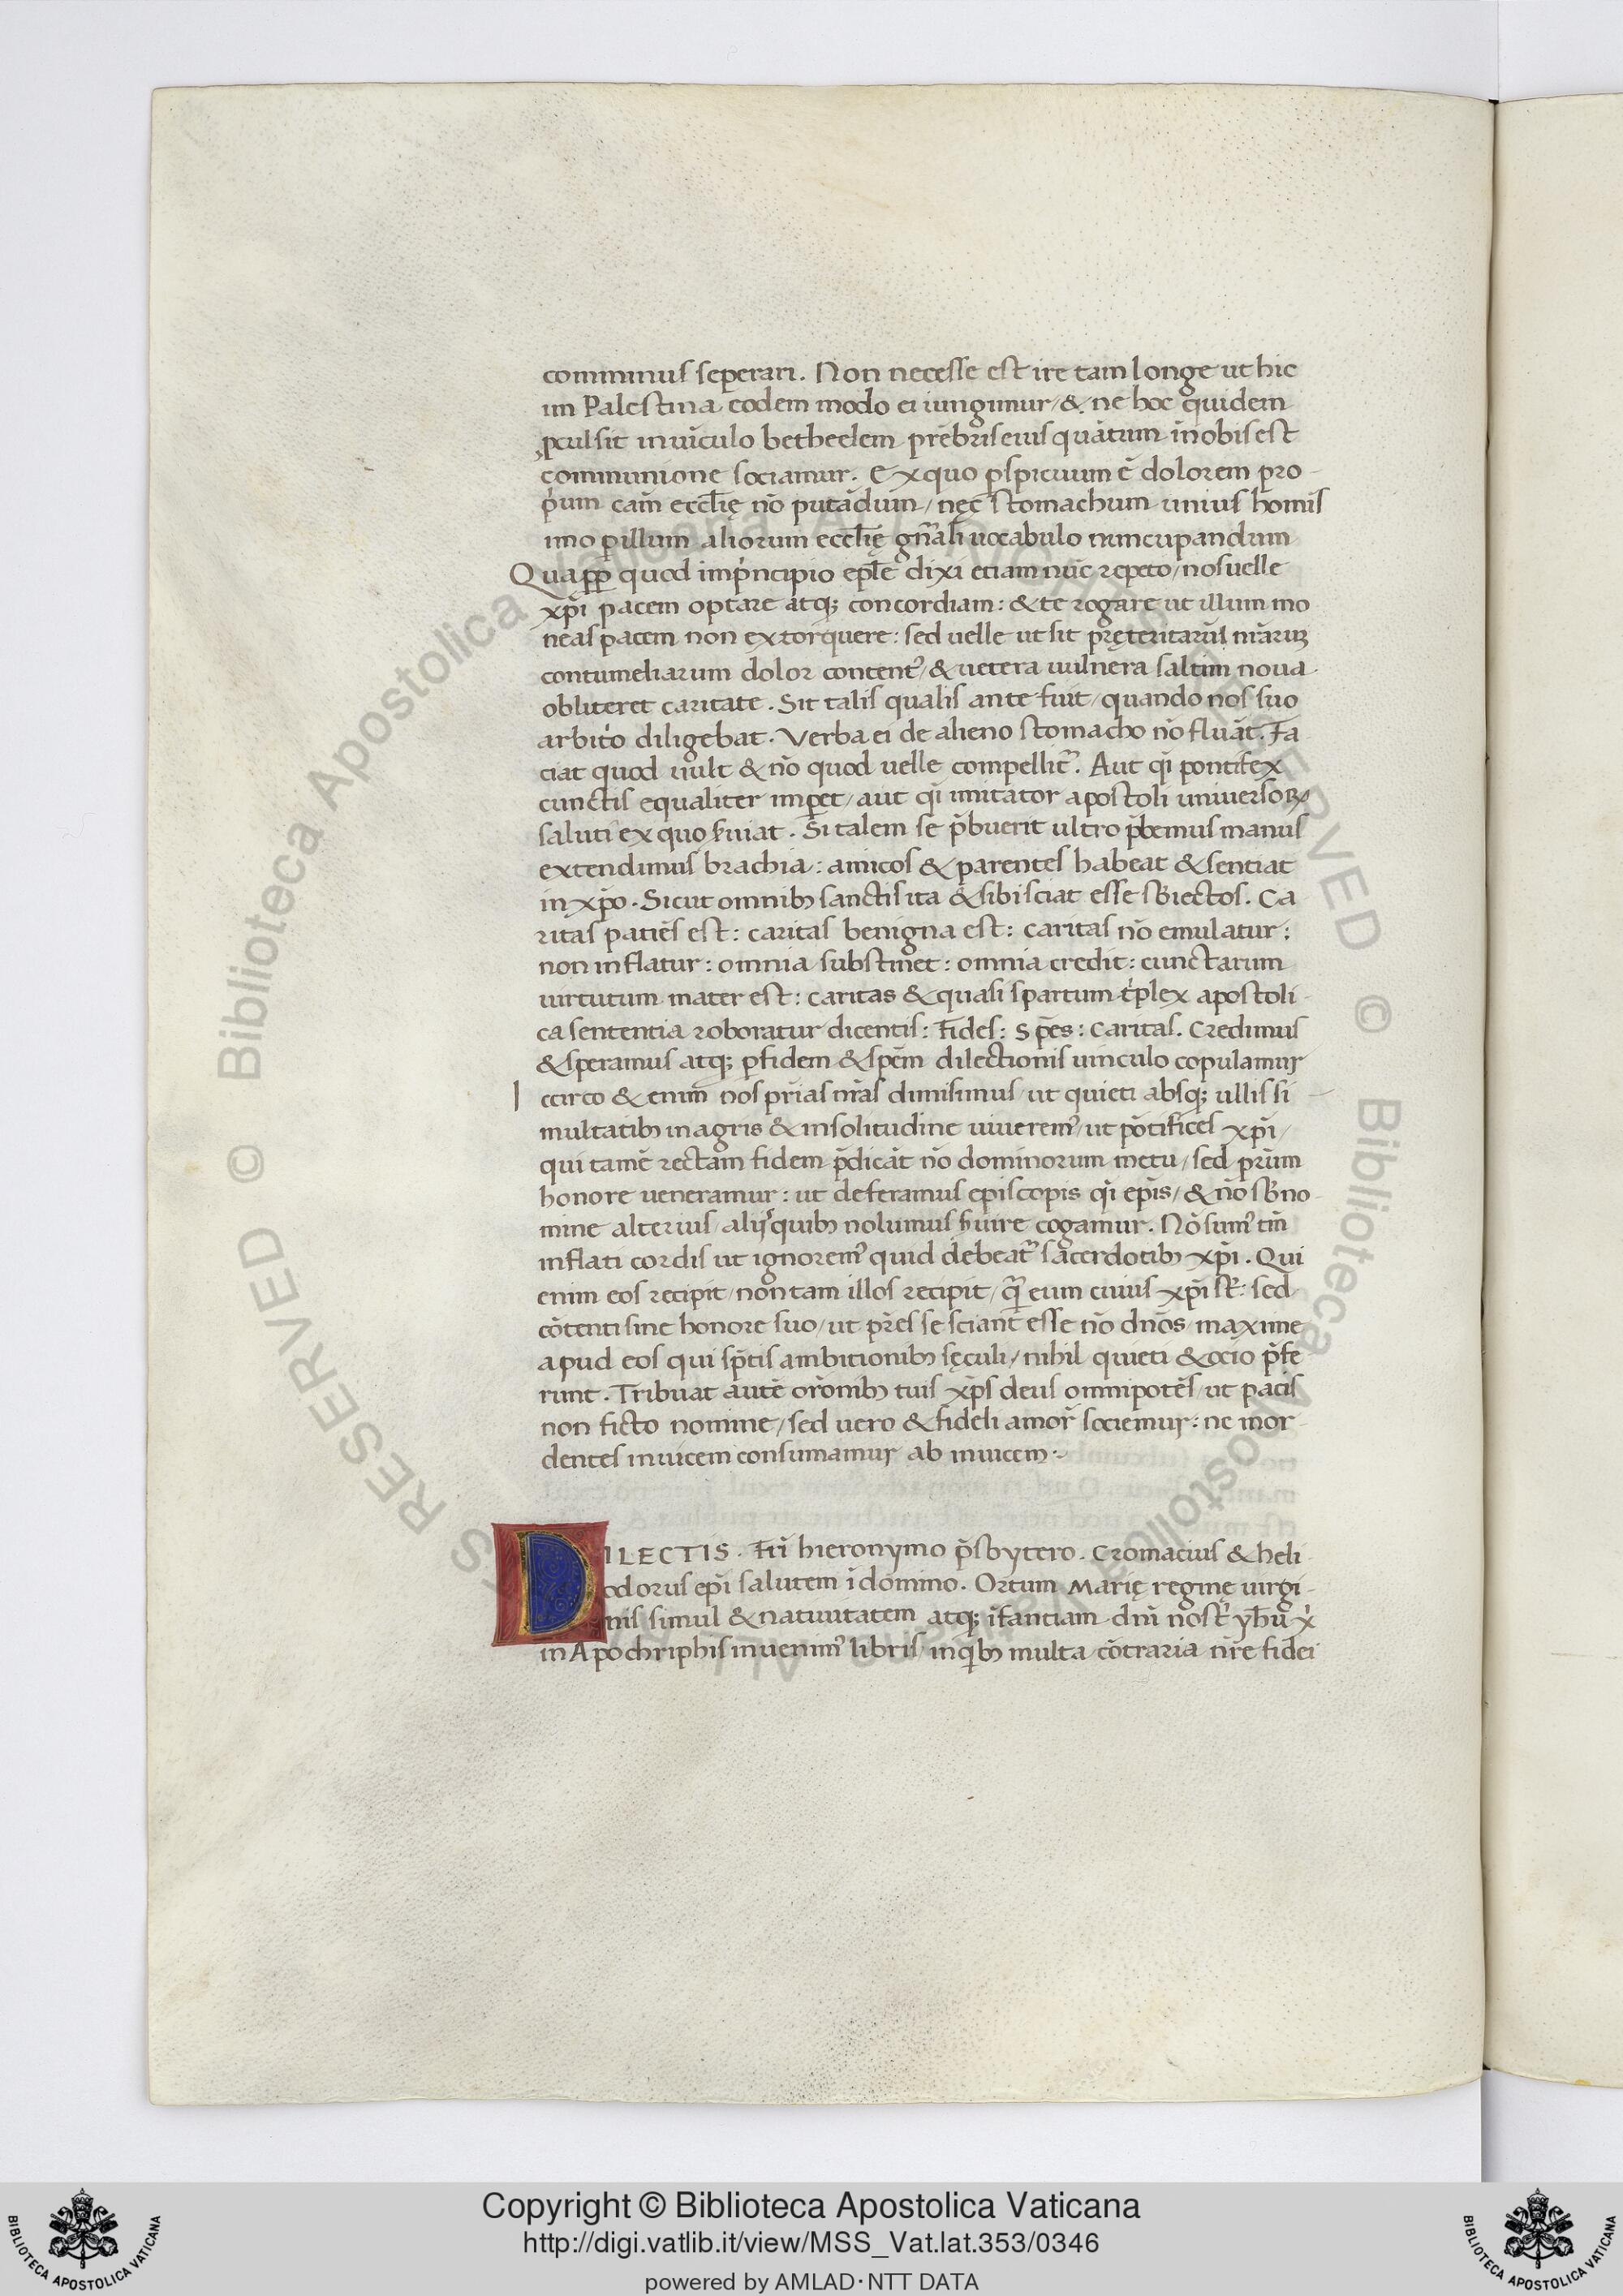 comminus seperari. Non necesse est ire tam longe ut hic
im Palestina eodem modo ei iungimur/ &. ne hoc quidem
ꝓcul sit in uiculo betheelem prēbr̄is eius quātum īnobis est
communione sociamur. Ex quo ꝑspicuum ē dolorem pro
p̍um cām eccl̄ię nō putādum/ nec stomachum unius homīs
imo ꝑ illum aliorum eccl̄ię gn̄ali uocabulo nuncupandum
Quapp̱ quod imp̍ncipio epl̄e dixi etiam nūc repeto/ nos uelle
xp̄i pacem optare atq; concordiam: & te rogare ut illum mo
neas pacem non extorquere: sed uelle ut sit pręteritarū nr̄arꝝ
contumeliarum dolor content᾽/ & uetera uulnera saltim noua
obliteret caritate. Sit talis qualis ante fuit/ quando nos suo
arbit̍o diligebat. Verba ei de alieno stomacho nō fluāt. Fa
ciat quod uult & nō quod uelle compellit᾽. Aut q̄i pontifex
cunctis equaliter imꝑet/ aut q̄i imitator apostoli uniuersoꝝ
saluti ex quo s̄uiat. Si talem se p̄buerit ultro p̄bemus manus
extendimus brachia: amicos & parentes habeat & sentiat
in xp̄o. Sicut omnibꝫ sanctis ita & sibi sciat esse sb̄iectos. Ca
ritas patiēs est: caritas benigna est: caritas nō emulatur:
non inflatur: omnia substinet: omnia credit: cunctarum
uirtutum mater est: caritas & quasi spartum t̍plex apostoli
ca sententia roboratur dicentis: Fides: Spēs: Caritas. Credimus
& speramus atq; ꝑ fidem & spēm dilectionis uinculo copulamur
I ccirco & enim nos pr̄ias nr̄as dimisimus/ ut quieti absq; ullis si
multatibꝫ in agris & in solitudine uiuerem᾽/ ut pōtifices xp̄i/
qui tamē rectam fidem p̄dicāt nō dominorum metu/ sed pr̄um
honore ueneramur: ut deferamus episcopis q̄i ep̄is/ & nō sb̄ no
mine alterius/ alijs quibꝫ nolumus s̄uire cogamur. Nō sum᾽ tm̄
inflati cordis ut ignorem᾽ quid debeat᾽ sacerdotibꝫ xp̄i. Qui
enim eos recipit/ non tam illos recipit/ q̄ eum cuius xp̄i st̄: sed
cōtenti sine honore suo/ ut pr̄es se sciant esse nō dn̄os/ maxime
apud eos qui sp̄tis ambitionibꝫ sęculi/ nihil quieti & ocio p̄fe
runt. Tribuat autē or̄onibꝫ tuis xp̄s deus omnipotēs/ ut pacis
non ficto nomine/ sed uero & fideli amor̄ sociemur: ne mor
dentes inuicem consumamur ab inuicem.
DILECTIS. Fr̄i hieronymo p̄sbytero. Cromacius & heli
odorus ep̄i salutem ī domino. Ortum Marię reginę uirgi
nis simul & natiuitatem atq; īfantiam dn̄i nost̍ yh̄u x̍
in Apochriphis inuenim᾽ libris/ in q̍bꝫ multa cōtraria nr̄e fidei
© Biblioteca Apostolica Vaticana ALL RIGHTS RESERVED
Copyright © Biblioteca Apostolica Vaticana
http://digi.vatlib.it/view/MSS_Vat.lat.353/0346
powered by AMLAD·NTT DATA
BIBLIOTECA APOSTOLICA VATICANA
BIBLIOTECA APOSTOLICA VATICANA